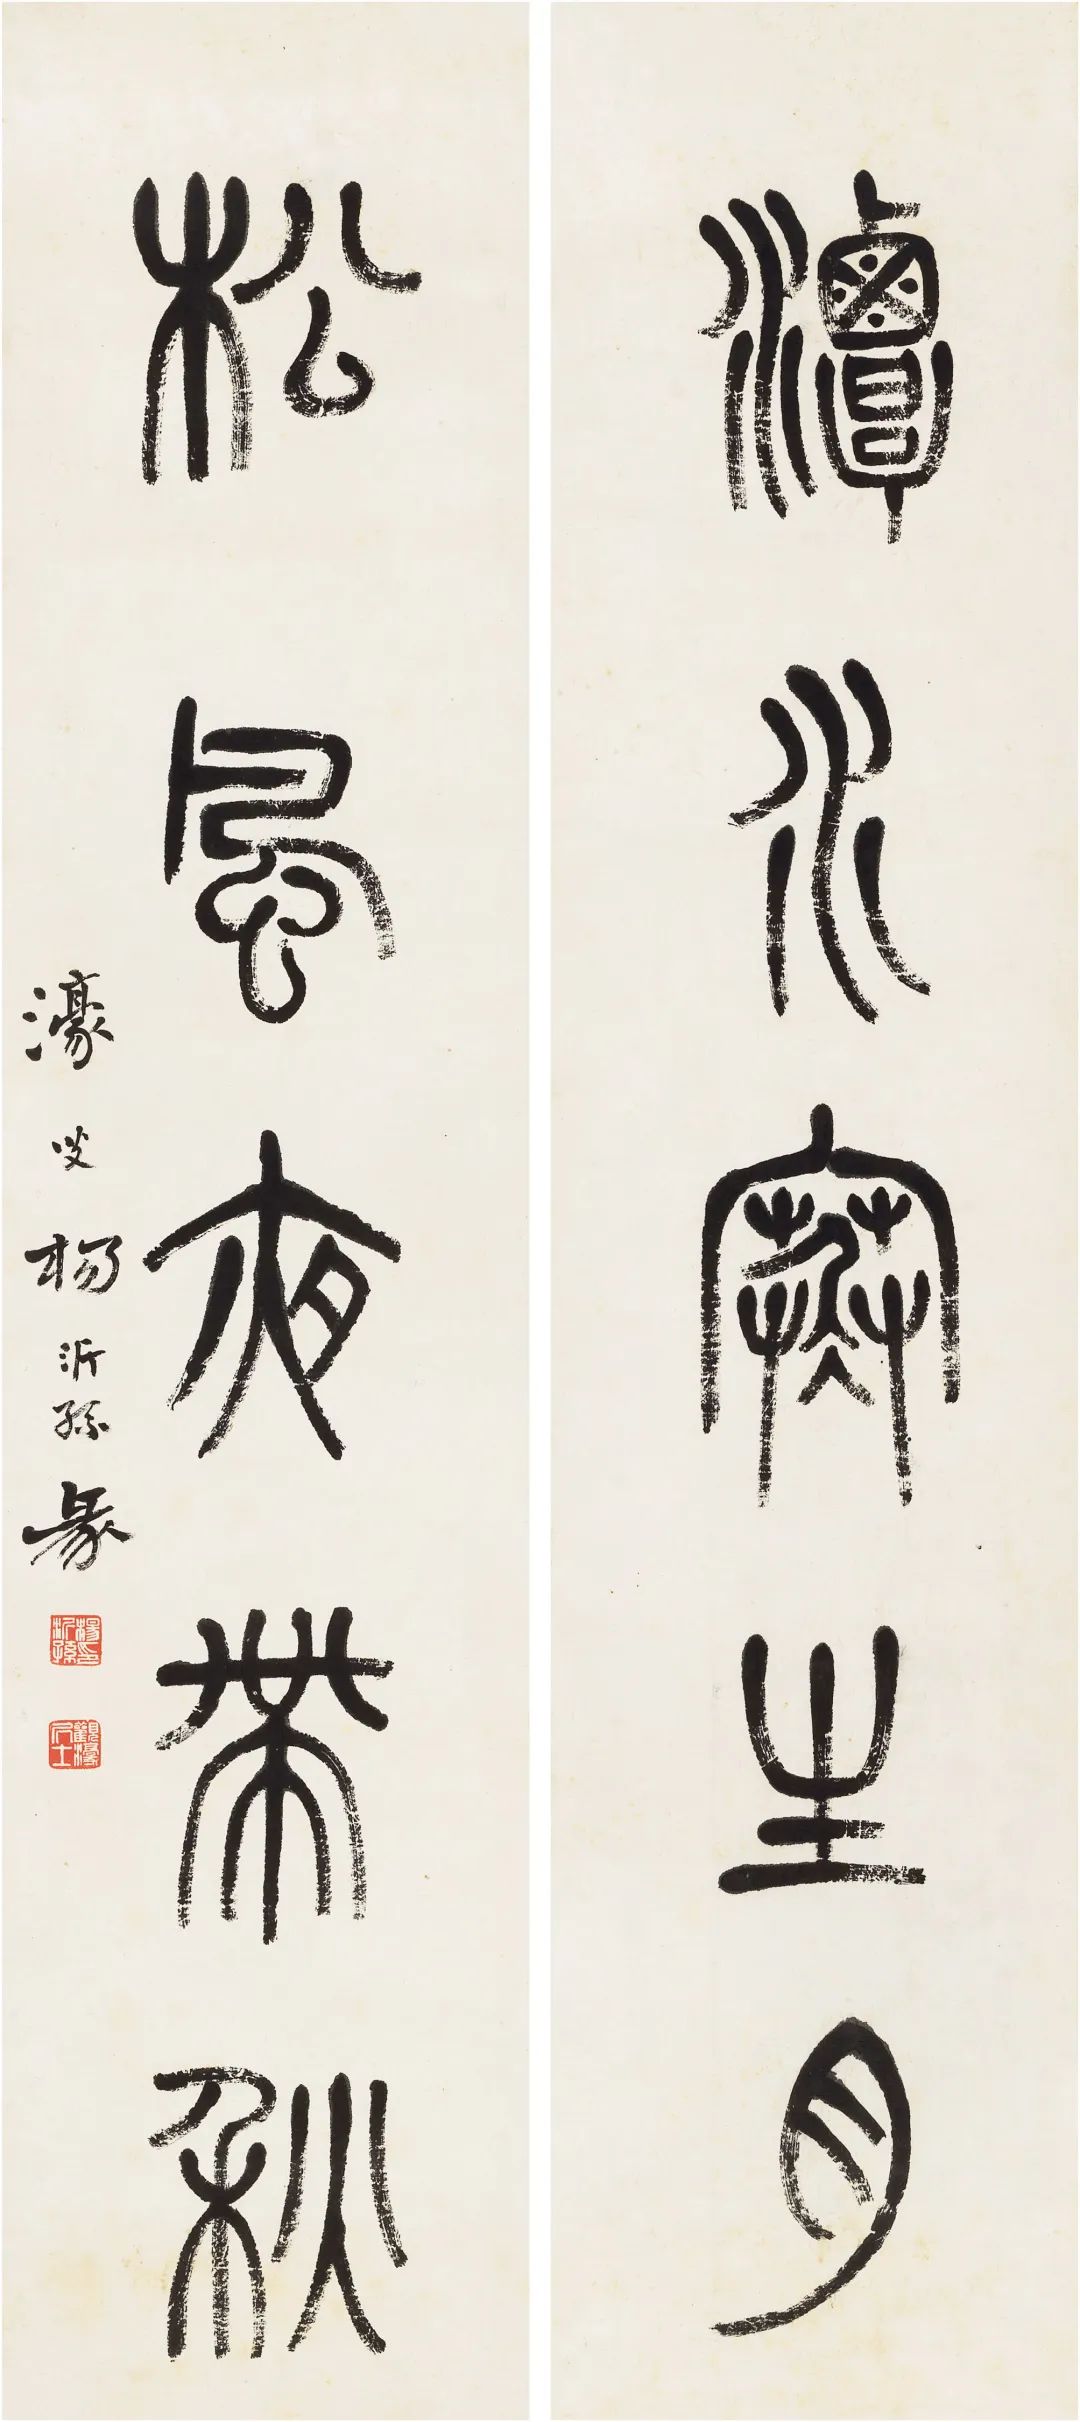 潭水寒生月
松風夜帶秋
濠叟楊沂孫彖
楊印沂孫
觀濠居士